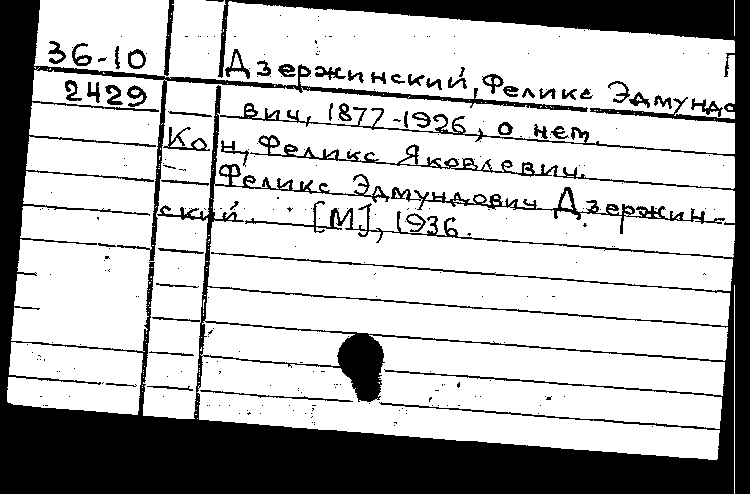 36-10 Дзержинский, Феликс Эдмундо
2429 вич, 1877-1926, о нем.
Кон, Феликс Яковлевич.
Феликс Эдмундович Дзержин-
ский. [М], 1936.